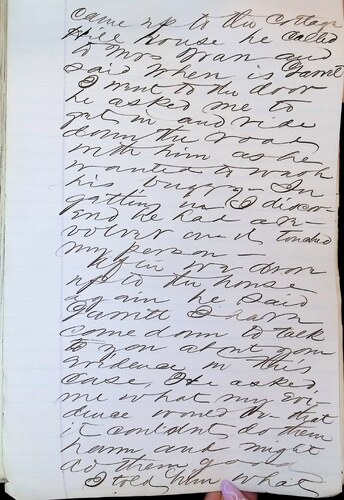 came up to the Cottage
Hill House he called
to Mrs Bran and
said when is Garrett
I went to the door
he asked me to
get in and ride
down the road
with him as he
wanted to wash
his buggy - In
getting in I discov-
erd he had a re-
volver and it touched
my person -
After we drove
up to the house
again he said
Garrett I have
come down to talk
to you about your
evidence in this
case, He asked
me what my evi-
dence would be - that
it couldnt do them
harm and might
do them good
I told him what